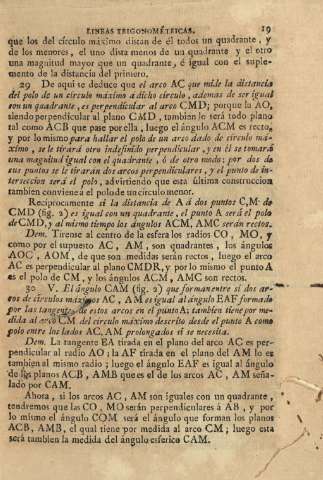 LINEAS TRIGONOMÉTRICAS. 19
que los del círculo máximo distan de él todos un quadrante, y
de los menores, el uno dista menos de un quadrante y el otro
una magnitud mayor que un quadrante, é igual con el suple-
mento de la distancia del primero.
29 De aquí se deduce que el arco AC que mide la distancia
del polo de un círculo máximo á dicho círculo, ademas de ser igual
con un quadrante, es perpendicular al arco CMD; porque la AO,
siendo perpendicular al plano CMD, tambien le será todo plano
tal como ACB que pase por ella, luego el ángulo ACM es recto,
y por lo mismo para hallar el polo de un arco dado de círculo má-
ximo, se le tirará otro indefinido perpendicular, y en él se tomará
una magnitud igual con el quadrante, ó de otro modo: por dos de
sus puntos se le tirarán dos arcos perpendiculares, y el punto de in-
terseccion será el polo, advirtiendo que esta última construccion
tambien conviene al polo de un círculo menor.
Recíprocamente si la distancia de A á dos puntos C, M de
CMD (fig. 2) es igual con un quadrante, el punto A será el polo
de CMD, y al mismo tiempo los ángulos ACM, AMC serán rectos.
Dem. Tirense al centro de la esfera los radios CO, MO, y
como por el supuesto AC, AM, son quadrantes, los ángulos
AOC, AOM, de que son medidas serán rectos, luego el arco
AC es perpendicular al plano CMDR, y por lo mismo el punto A
es el polo de CM, y los ángulos ACM, AMC son rectos.
30 V. El ángulo CAM (fig. 2) que forman entre sí dos ar-
cos de círculos máximos AC, AM es igual al ángulo EAF formado
por las tangentes de estos arcos en el punto A; tambien tiene por me-
dida al arco CM del círculo máximo descrito desde el punto A como
polo entre los lados AC, AM prolongados si se necesita.
Dem. La tangente EA tirada en el plano del arco AC es per-
pendicular al radio AO; la AF tirada en el plano del AM lo es
tambien al mismo radio; luego el ángulo EAF es igual al ángulo
de los planos ACB, AMB que es el de los arcos AC, AM seña-
lado por CAM.
Ahora, si los arcos AC, AM son iguales con un quadrante,
tendremos que las CO, MO serán perpendiculares á AB, y por
lo mismo el ángulo COM será el ángulo que forman los planos
ACB, AMB, el qual tiene por medida al arco CM; luego esta
será tambien la medida del ángulo esferico CAM.